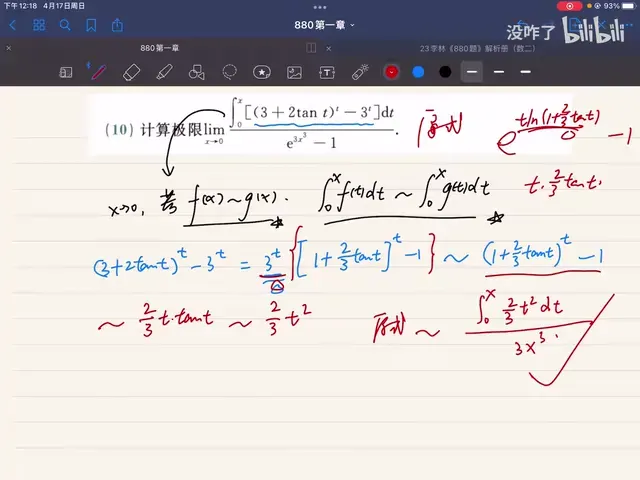 下午12:18 4月17日周日
93%
880第一章
没咋了 bilibili
880第一章
23学林《880题》解析册（数二）
(10) 计算极限 lim x→0 ∫₀ˣ[(3+2tan t)ᵗ−3ᵗ]dt / (e^{3x³}−1).
原式
e^{t ln(1+2/3 tan t)} −1
0
t·2/3 tan t.
x→0, 若 f(x)~g(x). ∫₀ˣ f(t)dt ~ ∫₀ˣ g(t)dt
(3+2tant)ᵗ−3ᵗ = 3ᵗ{[1+2/3 tant]ᵗ−1} ~ (1+2/3 tant)ᵗ −1
~ 2/3 t·tant ~ 2/3 t² 原式 ~ ∫₀ˣ 2/3 t² dt / 3x³.